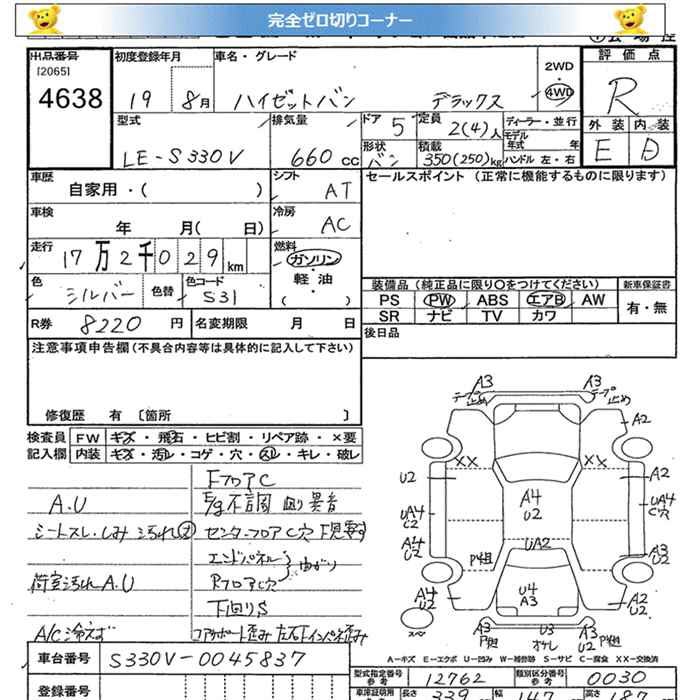 完全ゼロ切りコーナー
出品番号
[2065]
4638
初度登録年月
19 8月
車名・グレード
ハイゼットバン デラックス
2WD
4WD
評価点
R
外装 内装
E D
型式
LE-S330V
排気量
660 cc
ドア 5
形状 バン
定員 2(4)人
積載 350(250)kg
ディーラー・並行
モデル年式 年
ハンドル 左・右
車歴
自家用・( )
シフト AT
車検
年 月( 日)
冷房 AC
走行
17万2千029km
燃料
ガソリン
軽油
( )
色
シルバー
色替
色コード
S31
R券 8220円
名変期限 月 日
セールスポイント(正常に機能するものに限ります)
装備品(純正品に限り○をつけてください)
新車保証書
PS PW ABS エアB AW
有・無
SR ナビ TV カワ
後日品
注意事項申告欄(不具合内容等は具体的に記入して下さい)
修復歴 有 〔箇所 〕
検査員
記入欄
FW キズ・飛石・ヒビ割・リペア跡・×要
内装 キズ・汚レ・コゲ・穴・スレ・キレ・破レ
FフロアC
A.U
E/g不調 異音
シートスレ・しみ 汚れ大
センターフロアC穴 下見要す
エンドパネル
Rフロア穴
曲がり
荷室汚れA.U
下回りS
A/C冷えず
コアサポート歪み 左右Fインパネ歪み
A3
テープ止め
A3
テープ止め
A2
XX
XX
U2
A2
A4
U2
UA4
C2
UA4
C穴
A4
U2
UA2
A3
U2
U4
A3
A4
U2
A2
U2
スペ
A3
U3
U2
A-キズ E-エクボ U-凹み W-補修跡 S-サビ C-腐食 XX-交換済
車台番号 S330V-0045837
型式指定番号
参考
12762
類別区分番号
参考
0030
登録番号
長さ 339
幅 147
高さ 187